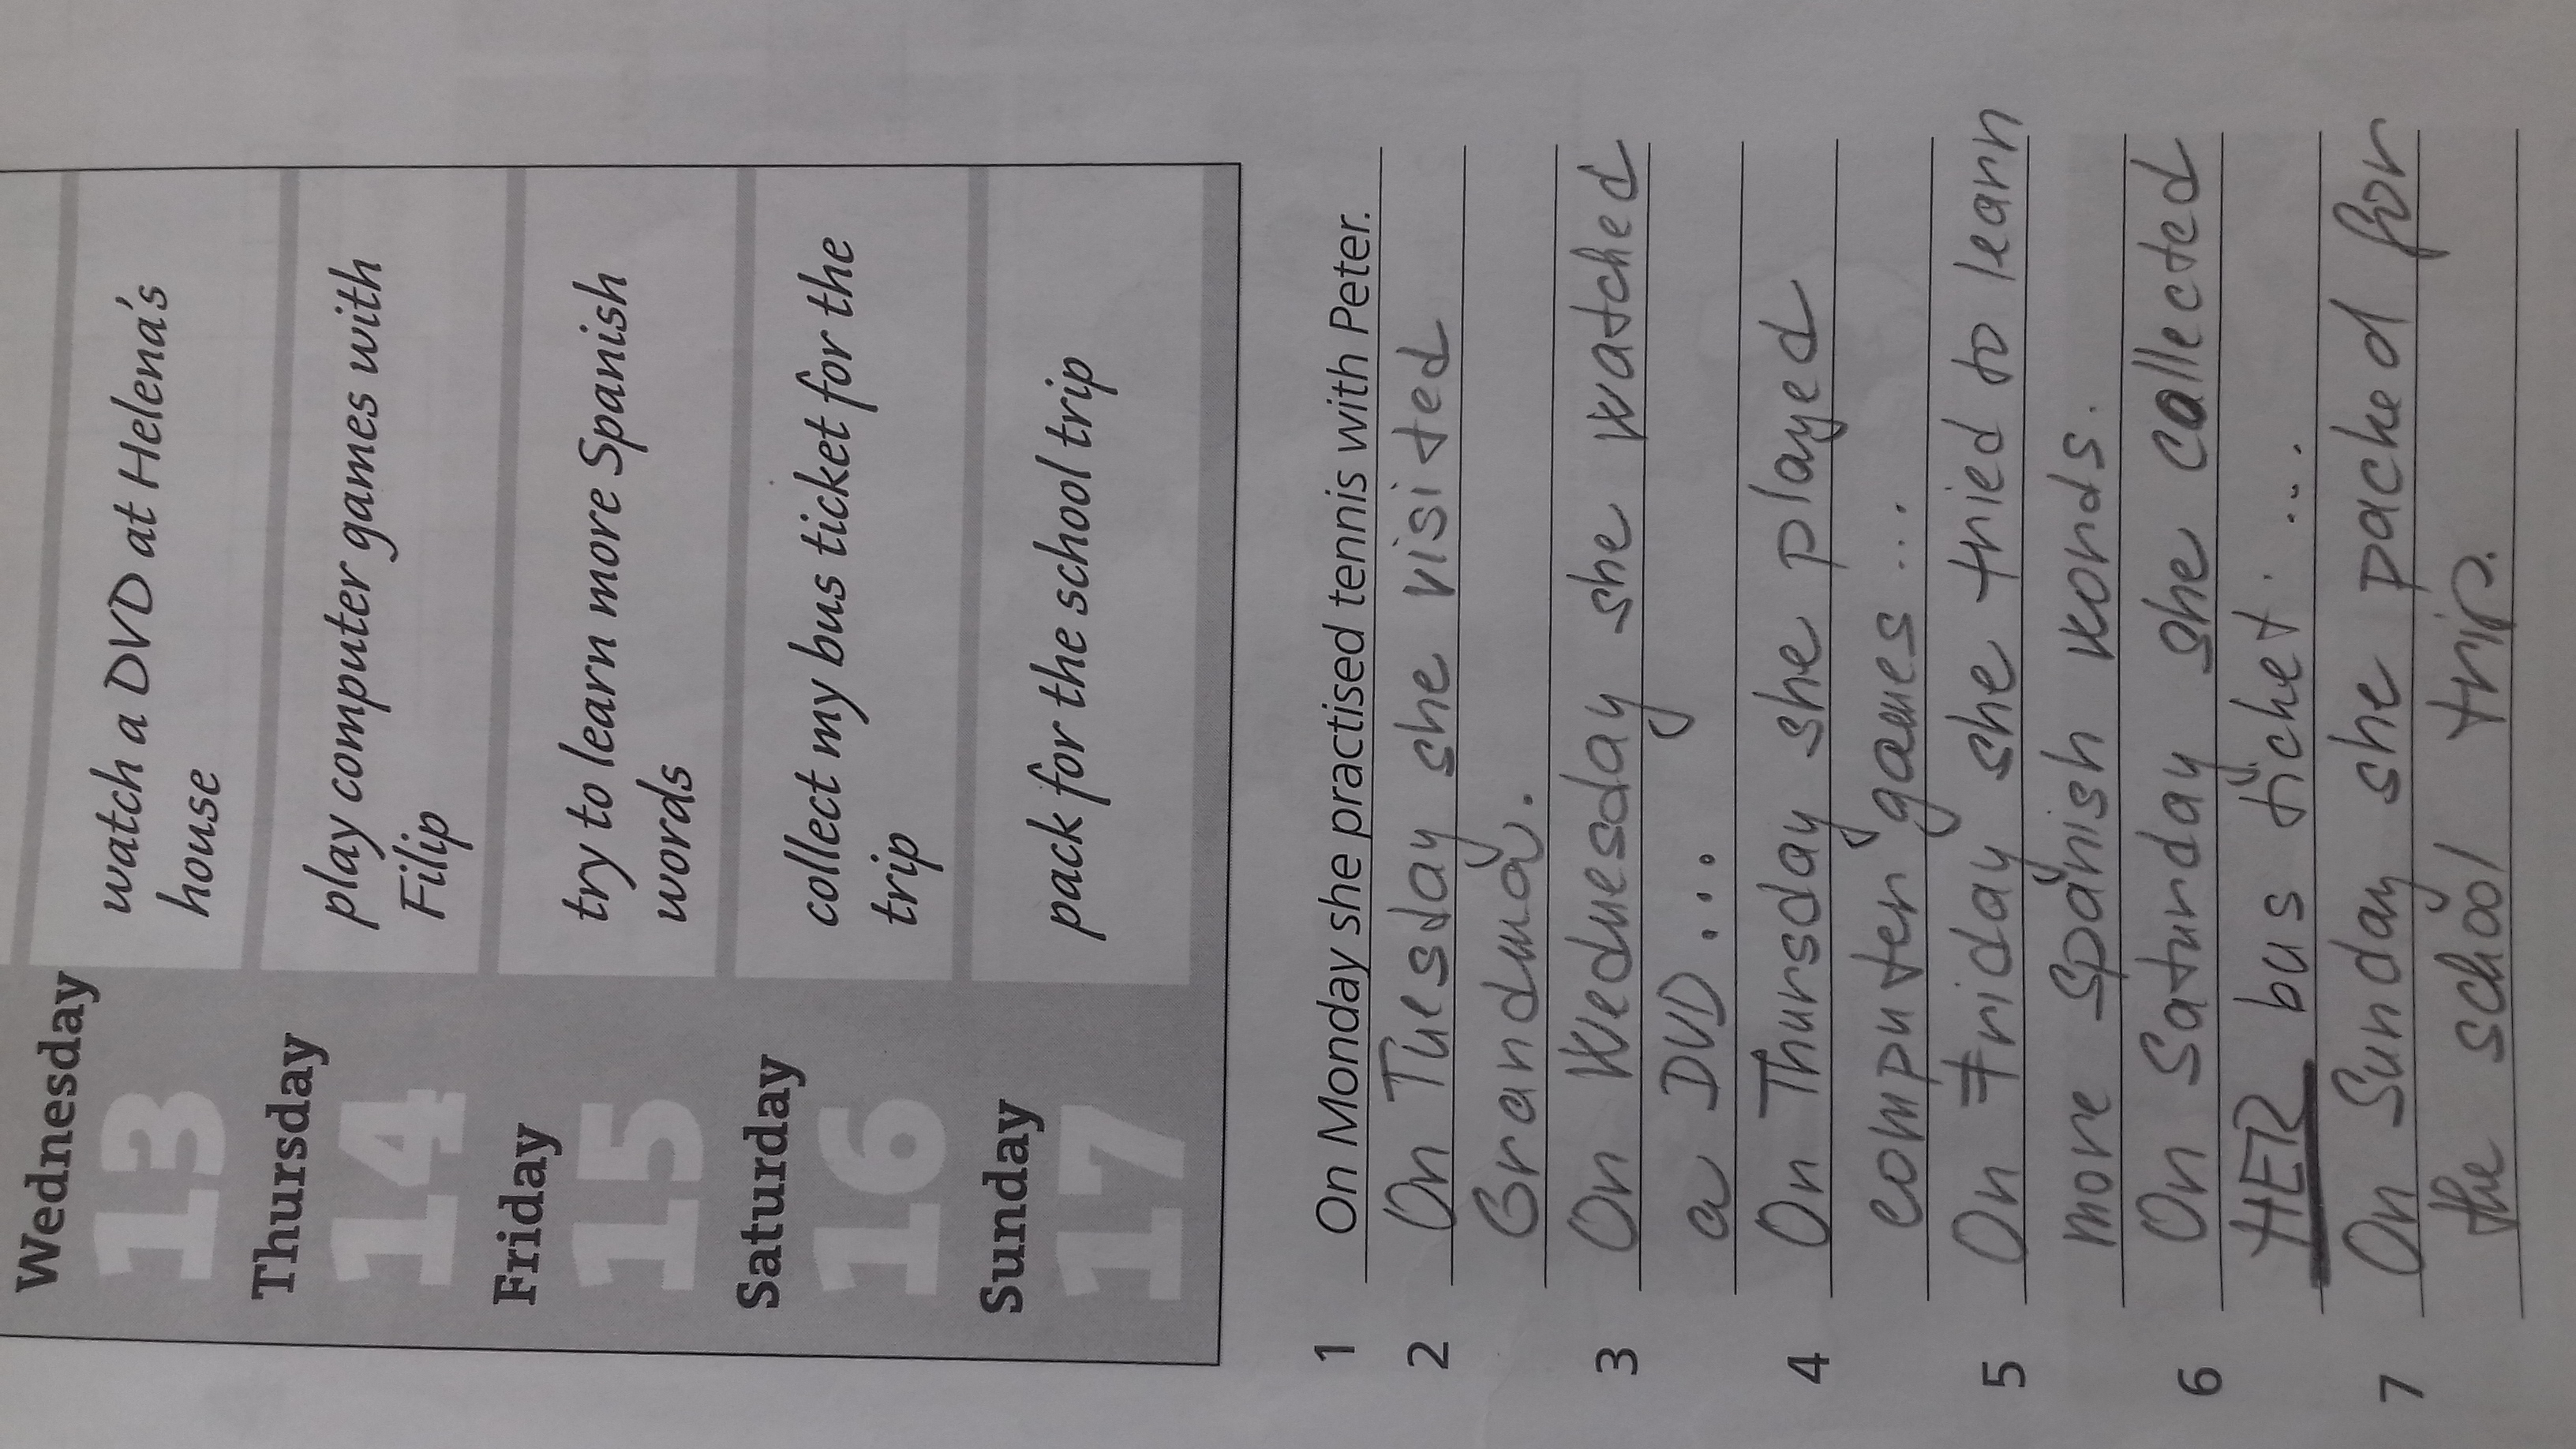 Wednesday
13
watch a DVD at Helena's
house
Thursday
14
play computer games with
Filip
Friday
15
try to learn more Spanish
words
Saturday
16
collect my bus ticket for the
trip
Sunday
17
pack for the school trip
1 On Monday she practised tennis with Peter.
2 On Tuesday she visited
Grandma.
3 On Wednesday she watched
a DVD ...
4 On Thursday she played
computer games ...
5 On Friday she tried to learn
more Spanish words.
6 On Saturday she collected
HER bus ticket ...
7 On Sunday she packed for
the school trip.